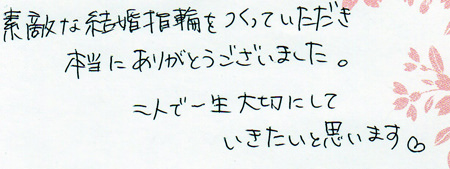 素敵な結婚指輪をつくっていただき
本当にありがとうございました。
二人で一生大切にして
いきたいと思います♡